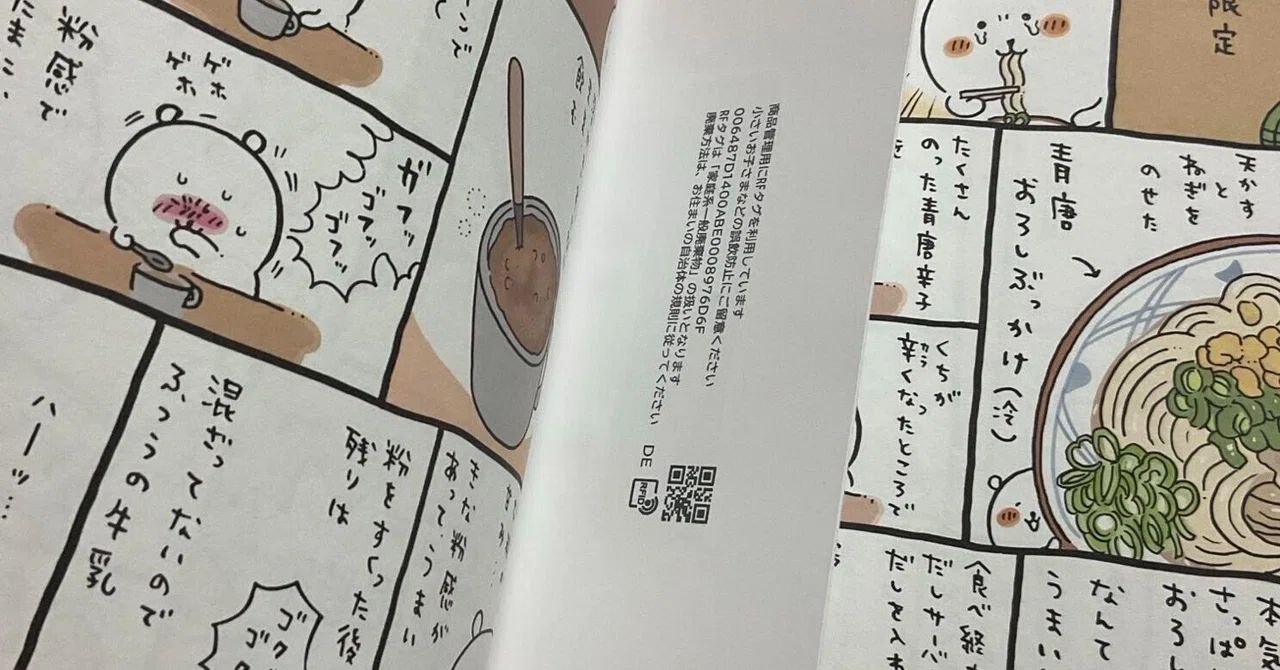 限定
天かす
と
ねぎを
のせた
青唐
おろしぶっかけ(冷)
たくさん
のった青唐辛子
を
くちが
辛くなったところで
からっ
本気
さっぱ
おろし
なんて
うまい
食べ終
だしサーバ
だしを入れ
商品管理用にRFタグを利用しています
小さいお子さまなどの誤飲防止にご留意ください
006487D1400ABE0008976D6F
RFタグは「家庭系一般廃棄物」の扱いとなります
廃棄方法は、お住まいの自治体の規則に従ってください
DE
RFID
粉感で
ゲホ
ゲホ
ガフッ
ゴフッ
ゴフッ
きな粉感が
あって、うまい
粉をすくった後
残りは
混ざってないので
ふつうの牛乳
ゴク
ゴク
ハーッ…